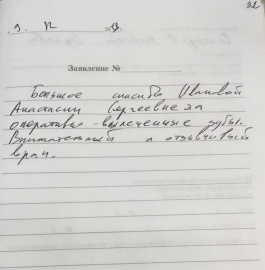 32
Заявление №
Большое спасибо Ивановой
Анастасии Сергеевне за
оперативно-вылеченные зубы.
Внимательный и отзывчивый
врач.